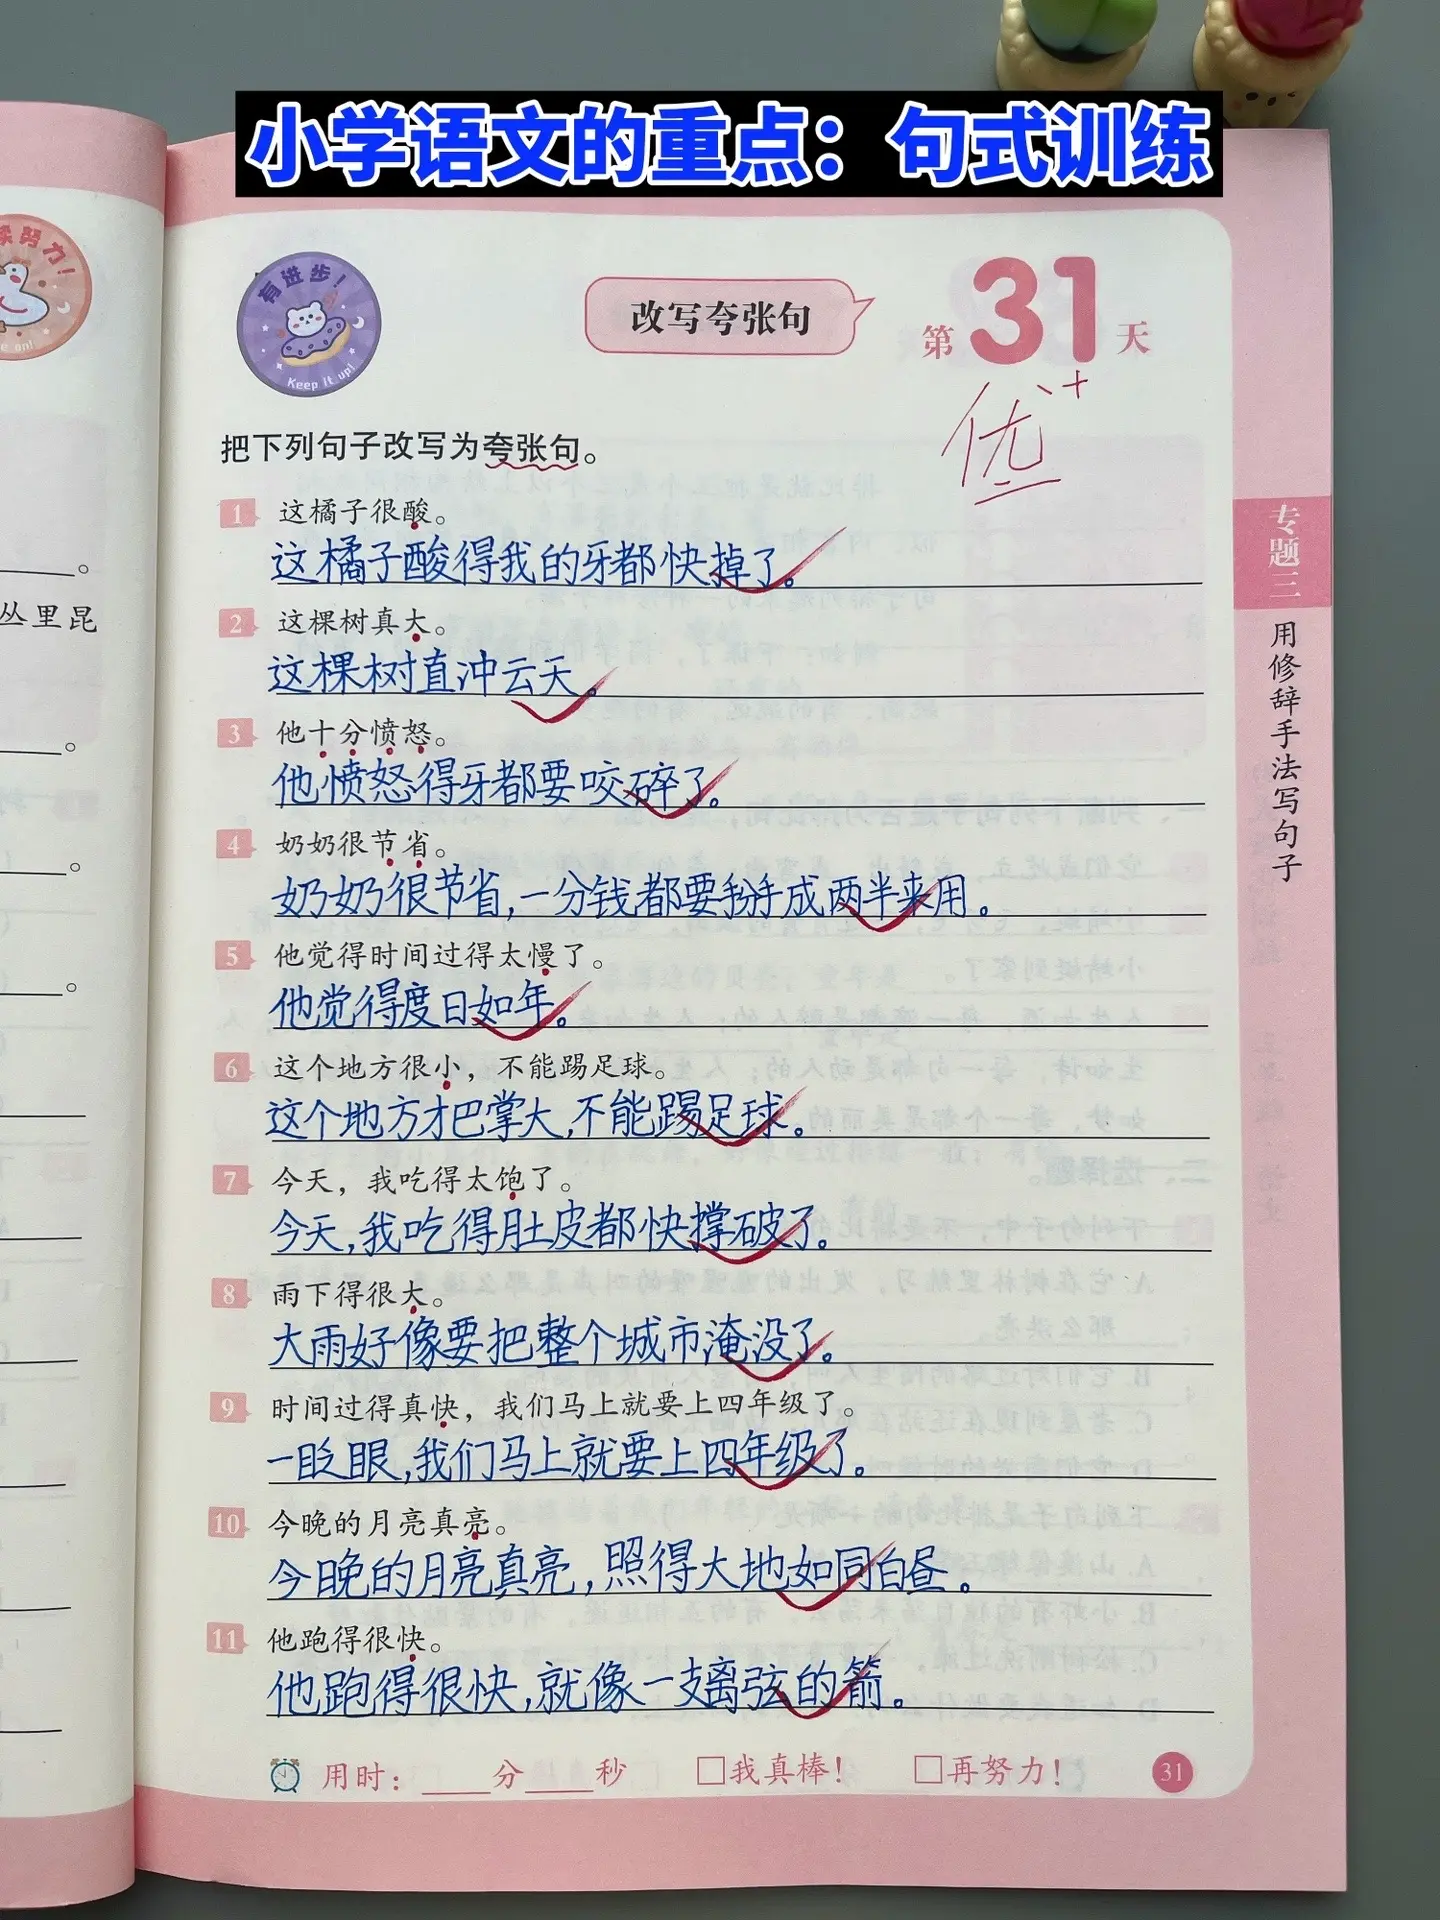 小学语文的重点：句式训练
努力！
有进步！
Keep it up!
改写夸张句
第31天
优+
把下列句子改写为夸张句。
1 这橘子很酸。
这橘子酸得我的牙都快掉了。
2 这棵树真大。
这棵树直冲云天。
3 他十分愤怒。
他愤怒得牙都要咬碎了。
4 奶奶很节省。
奶奶很节省，一分钱都要掰成两半来用。
5 他觉得时间过得太慢了。
他觉得度日如年。
6 这个地方很小，不能踢足球。
这个地方才巴掌大，不能踢足球。
7 今天，我吃得太饱了。
今天，我吃得肚皮都快撑破了。
8 雨下得很大。
大雨好像要把整个城市淹没了。
9 时间过得真快，我们马上就要上四年级了。
一眨眼，我们马上就要上四年级了。
10 今晚的月亮真亮。
今晚的月亮真亮，照得大地如同白昼。
11 他跑得很快。
他跑得很快，就像一支离弦的箭。
用时：____分____秒 □我真棒！ □再努力！
31
专题三
用修辞手法写句子
。
丛里昆
。
。
。